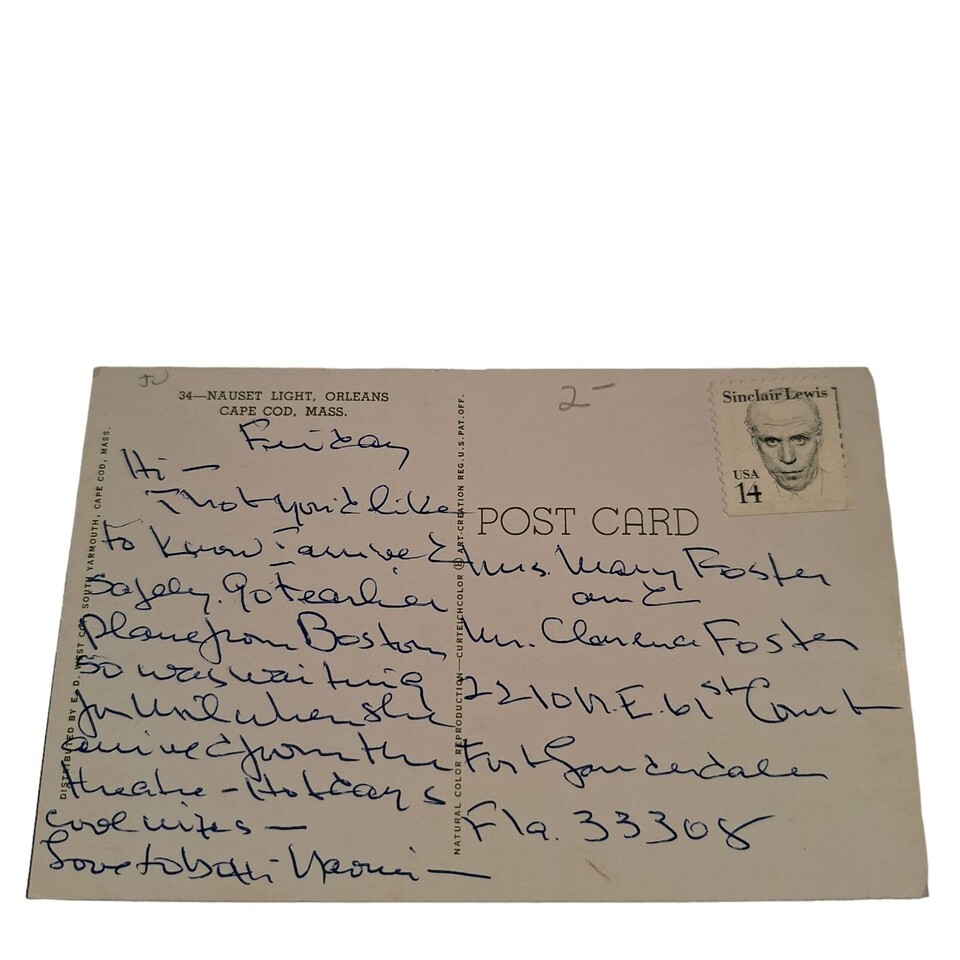 34—NAUSET LIGHT, ORLEANS
CAPE COD, MASS.
Friday
Hi —
Thot you'd like
to know I arrived
safely. Got earlier
plane from Boston
so was waiting
for when she
arrived from the
theatre - Hot days
cool nites —
Love to both -
DISTRIBUTED BY E. D. WEST CO., SOUTH YARMOUTH, CAPE COD, MASS.
NATURAL COLOR REPRODUCTION—CURTEICHCOLOR ® ART-CREATION REG. U.S. PAT. OFF.
2-
Sinclair Lewis
USA
14
POST CARD
Mrs. Mary Foster
and
Mr. Clarence Foster
2210 N.E. 61st Court
Fort Lauderdale
Fla. 33308